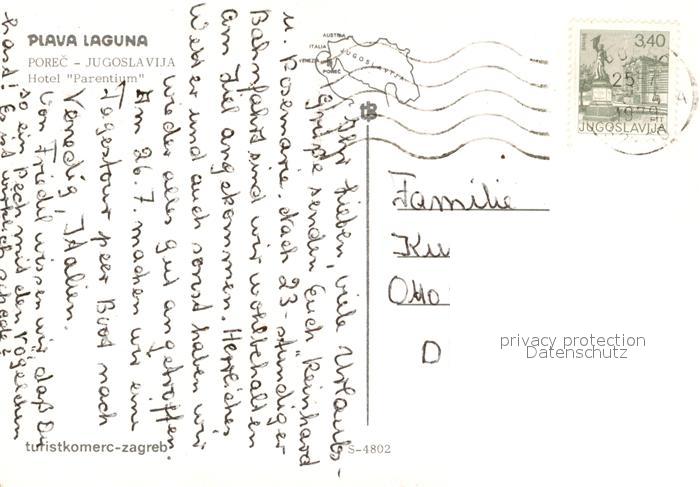 PLAVA LAGUNA
POREČ - JUGOSLAVIJA
Hotel "Parentium"
AUSTRIA
ITALIA
VENEZIA
POREČ
JUGOSLAVIJA
3,40
JUGOSLAVIJA
Ihr Lieben, viele Urlaubs-
grüße senden Euch Reinhard
u. Rosemarie. Nach 23-stündiger
Bahnfahrt sind wir wohlbehalten
am Ziel angekommen. Herrliches
Wetter und auch sonst haben wir
wieder alles gut angetroffen.
Am 26.7. machen wir eine
Tagestour per Boot nach
Venedig, Italien.
Von Friedel wissen wir, daß Du
so ein Pech mit den Vögelchen
hast! Es ist wirklich schade!
Familie
Ku
Otto
D
privacy protection
Datenschutz
turistkomerc-zagreb
S-4802